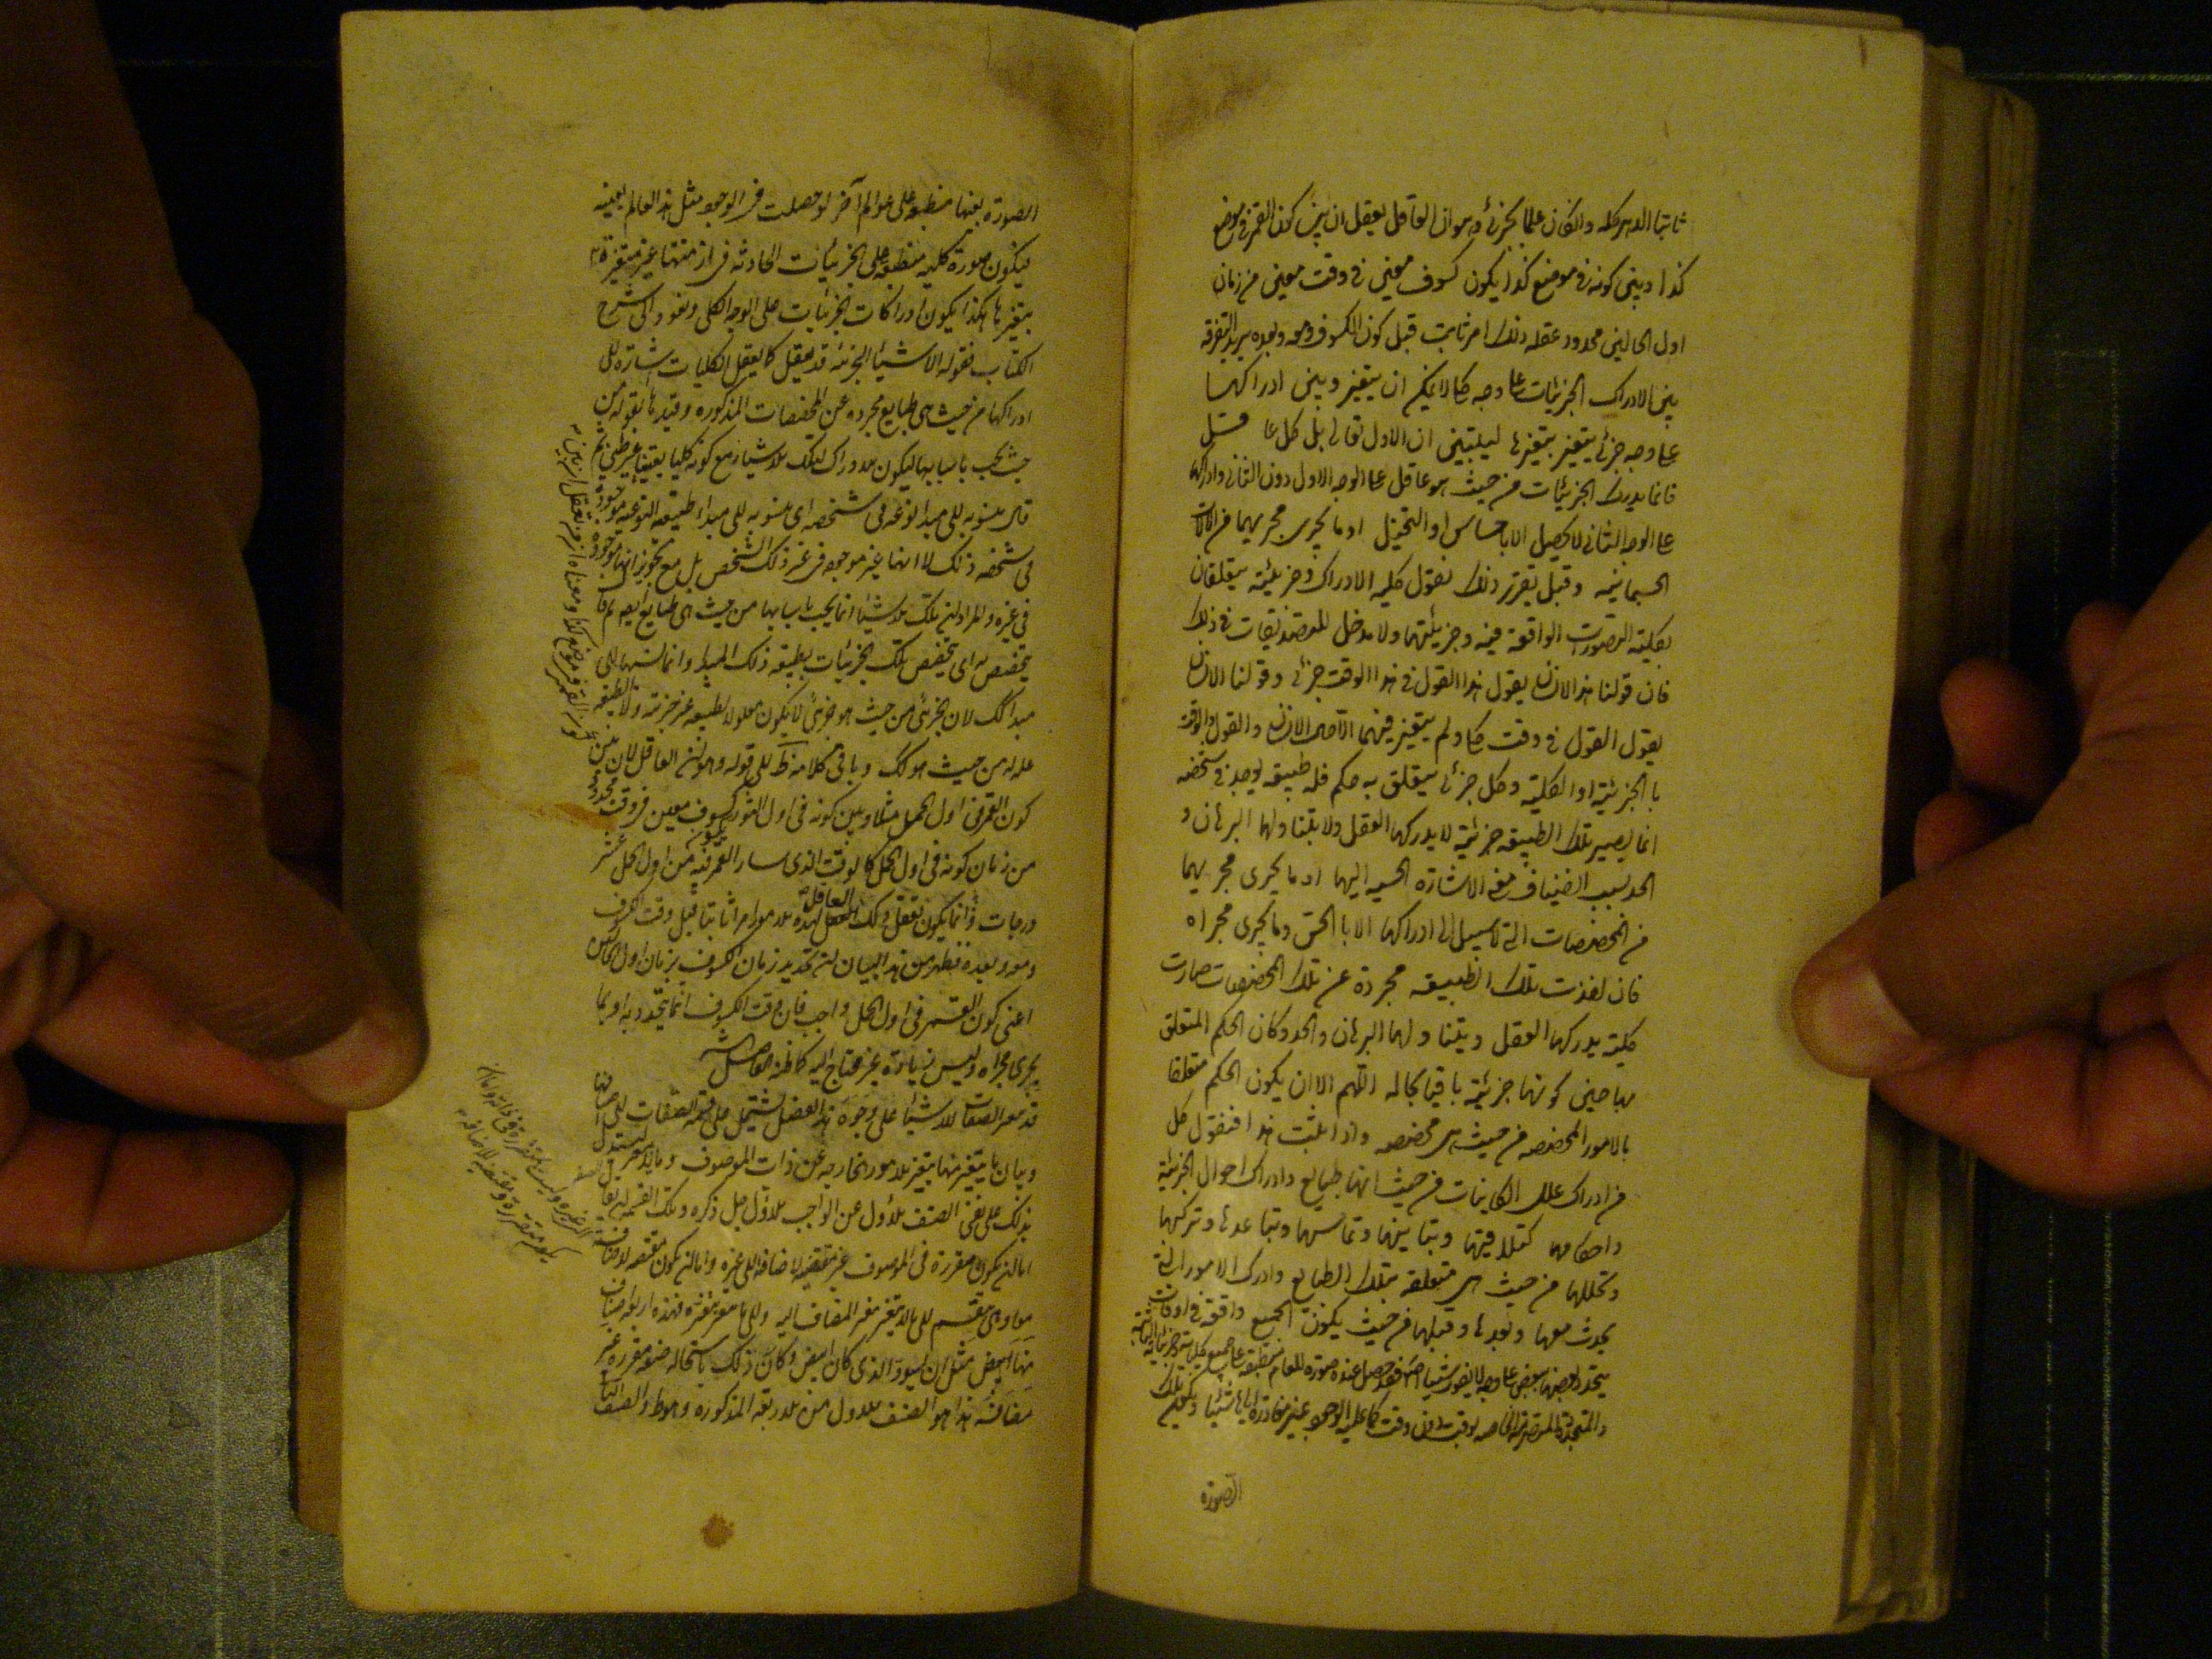 ثابتا الدهر كله وان كان علما بجزئي وهو ان العاقل يعقل ان بين كون القمر في موضع
كذا وبين كونه في موضع كذا يكون كسوف معين في وقت معين من زمان
اول الحالين محدود عقله ذلك امر ثابت قبل كون الكسوف ومعه وبعده يريد التفرقة
بين الادراك الجزئيات على وجه كلي لا يمكن ان يتغير وبين ادراكها
على وجه جزئي يتغير بتغيرها ليتبين ان الاول تعالى بل كل عاقل
فانما يدرك الجزئيات من حيث هو عاقل على الوجه الاول دون الثاني وادراكها
على الوجه الثاني لا يحصل الا بالاحساس او التخيل او ما يجري مجريهما من الآلات
الجسمانية وقبل تقرير ذلك نقول كلية الادراك وجزئيته يتعلقان
بكلية التصورات الواقعة فيه وجزئيتها ولا مدخل للتصديقات في ذلك
فان قولنا هذا الانسان يقول هذا القول في هذا الوقت جزئي وقولنا الانسان
يقول القول في وقت كلي ولم يتغير فيهما الا حال الانسان والقول والوقت
بالجزئية او الكلية وكل جزئي يتعلق به حكم فله طبيعة توجد في شخصه
انما يصير تلك الطبيعة جزئية لا يدركها العقل ولا يتناولها البرهان و
الحد بسبب انضياف معنى الاشارة الحسية اليها او ما يجري مجريها
من المخصصات التي لا سبيل الى ادراكها الا بالحس وما يجري مجراه
فان اخذت تلك الطبيعة مجردة عن تلك المخصصات صارت
كلية يدركها العقل ويتناولها البرهان والحد وكان الحكم المتعلق
بها حين كونها جزئية باقيا بحاله اللهم الا ان يكون الحكم متعلقا
بالامور المخصصة من حيث هي مخصصة واذا ثبت هذا فنقول كل
من ادرك علل الكاينات من حيث انها طبايع وادرك احوال الجزئية
واحكامها كتلاقيها وتباينها وتماسها وتباعدها وتركبها
وتحللها من حيث هي متعلقة بتلك الطبايع وادرك الامور التي
يحدث معها وبعدها وقبلها من حيث يكون الجميع واقعة في اوقات
يتحدد بعضها ببعض على وجه لا يفوته شيئا اصلا فقد حصل عنده صورة العالم منطبقة على جميع كلياته وجزئياته الثابتة
والمتجددة المتصرمة الخاصة بوقت دون وقت كما عليه الوجود غير مغادرة اياها شيئا ويكون تلك
الصورة
الصورة بعينها منطبقة على عوالم آخر لو حصلت في الوجود مثل هذا العالم بعينه
فيكون صورة كلية منطبقة على الجزئيات الحادثة في ازمنتها غير متغيرة
بتغيرها هكذا يكون ادراكات الجزئيات على الوجه الكلي ونعود الى شرح
الكتاب فقوله الاشياء الجزئية قد يعقل كما يعقل الكليات اشارة الى
ادراكها من حيث هي طبايع مجردة عن المخصصات المذكورة وقيدها بقوله من
حيث يجب باسبابها ليكون الادراك لتلك الاشياء مع كونه كليا يقينيا غير ظني ثم
قال منسوبة الى مبدأ نوعه في شخصه اي منسوبة الى مبدأ طبيعته النوعية موجودة
في شخصه ذلك لا انها غير موجود في غير ذلك الشخص بل مع تجويز انها موجودة
في غيره والمراد ان تلك الاشياء انما يجب باسبابها من حيث هي طبايع ايضا ثم قال
يتخصص به اي يتخصص تلك الجزئيات بطبيعة ذلك المبدأ وانما نسبها الى
مبدأ كذلك لان الجزئي من حيث هو جزئي لا يكون معلولا لطبيعة غير جزئية ولا الطبيعة
علة له من حيث هو كذلك وباقي كلامه ظ الى قوله وهو ان العاقل لان بين
كون القمر في اول الحمل مثلا وبين كونه في اول الثور يكون كسوف معين في وقت محدود
من زمان كونه في اول الحمل كالوقت الذي سار القمر فيه من اول الحمل عشر
درجات فانما يكون تعقل ذلك العاقل لهذه الامور امرا ثابتا قبل وقت الكسوف
ومعه وبعده فظهر من هذا البيان ان تحديد زمان الكسوف بزمان اول الحالين
اعني كون القمر في اول الحمل واجب فان وقت الكسوف انما يتحدد به او بما
يجري مجراه وليس بزيادة غير محتاج اليه كما ظنه الفاضل الشارح
قد تتغير الصفات للاشياء على وجوه هذا الفصل يشتمل على قسمة الصفات الى اصنافها
وبيان ما يتغير منها بتغير الامور الخارجة عن ذات الموصوف وما لا يتغير ليستدل
بذلك على نفي الصنف الاول عن الواجب الاول جل ذكره وتلك القسمة ان يقال
اما ان تكون متقررة في الموصوف غير مقتضية لاضافة الى غيره واما ان تكون مقتضية لاضافة
منها ابيض مثل ان يسود الذي كان ابيض وكان ذلك باستحالة صفة متقررة غير
مضافة هذا هو الصنف الاول من الاربعة المذكورة وهو ظ والصنف الثاني